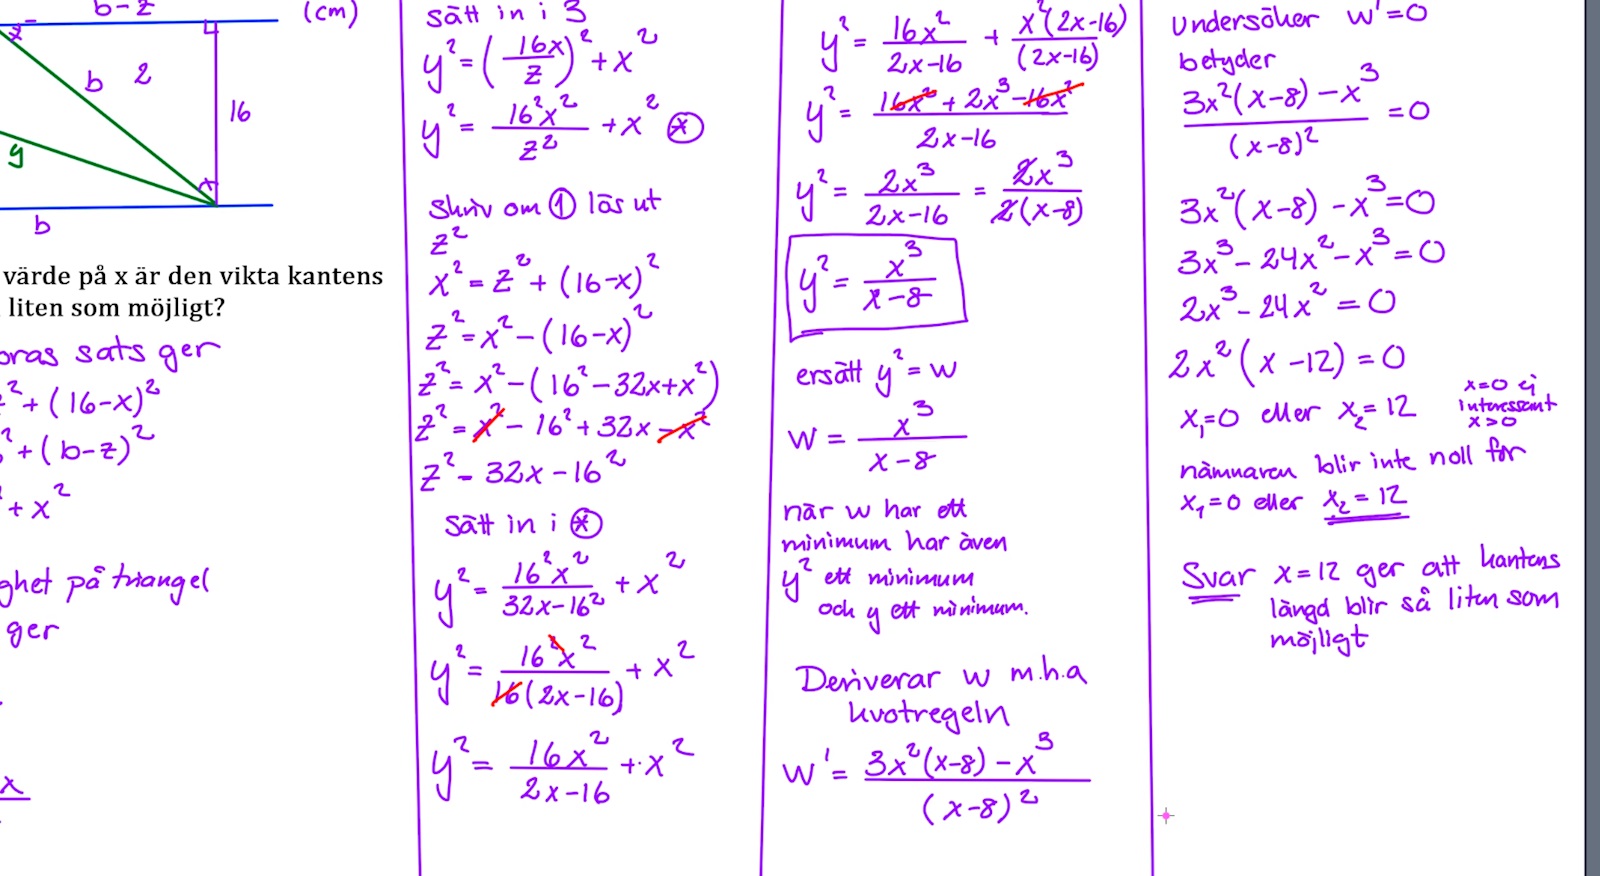 b-z
(cm)
z
b
2
16
y
x
b
värde på x är den vikta kantens
liten som möjligt?
oras sats ger
z²+(16-x)²
²+(b-z)²
+x²
ghet på triangel
ger
x
sätt in i 3
y²=(16x/z)²+x²
y²=16²x²/z²+x² (*)
Skriv om ① lös ut
z²
x²=z²+(16-x)²
z²=x²-(16-x)²
z²=x²-(16²-32x+x²)
z²=x²-16²+32x-x²
z²-32x-16²
Sätt in i (*)
y²=16²x²/32x-16²+x²
y²=16²x²/16(2x-16)+x²
y²=16x²/2x-16+x²
y²=16x²/2x-16+x²(2x-16)/(2x-16)
y²=16x²+2x³-16x²/2x-16
y²=2x³/2x-16=2x³/2(x-8)
y²=x³/x-8
ersätt y²=w
w=x³/x-8
när w har ett
minimum har även
y² ett minimum
och y ett minimum.
Deriverar w m.h.a
kvotregeln
w'=3x²(x-8)-x³/(x-8)²
Undersöker w'=0
betyder
3x²(x-8)-x³/(x-8)²=0
3x²(x-8)-x³=0
3x³-24x²-x³=0
2x³-24x²=0
2x²(x-12)=0
x₁=0 eller x₂=12
x=0 ej
interessant
x>0
nämnaren blir inte noll för
x₁=0 eller x₂=12
Svar x=12 ger att kantens
längd blir så liten som
möjligt